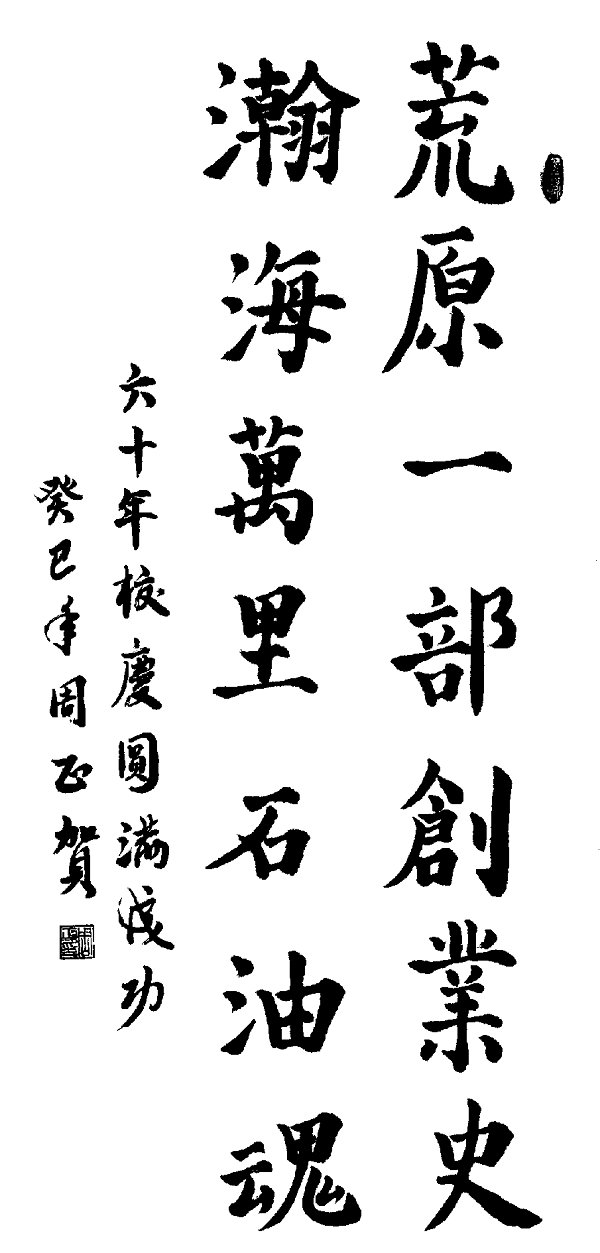 荒原一部創業史
瀚海萬里石油魂
六十年校慶圓滿成功
癸巳年周正賀